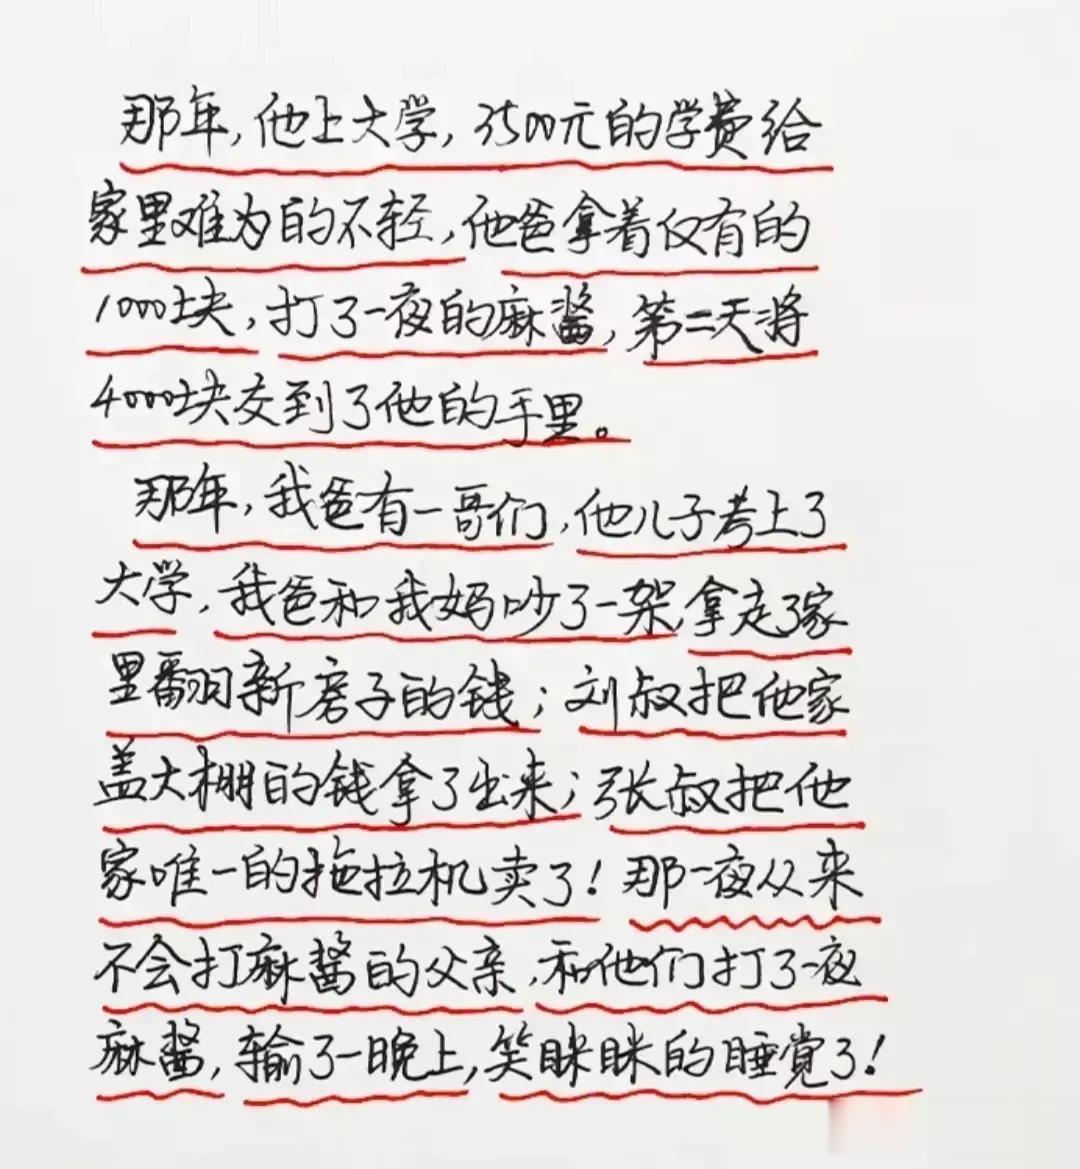 那年，他上大学，3500元的学费给
家里难为的不轻，他爸拿着仅有的
1000块，打了一夜的麻酱，第二天将
4000块交到了他的手里。
那年，我爸有一哥们，他儿子考上了
大学，我爸和我妈吵了一架，拿走了家
里翻新房子的钱；刘叔把他家
盖大棚的钱拿了出来；张叔把他
家唯一的拖拉机卖了！那一夜从来
不会打麻酱的父亲，和他们打了一夜
麻酱，输了一晚上，笑眯眯的睡觉了！